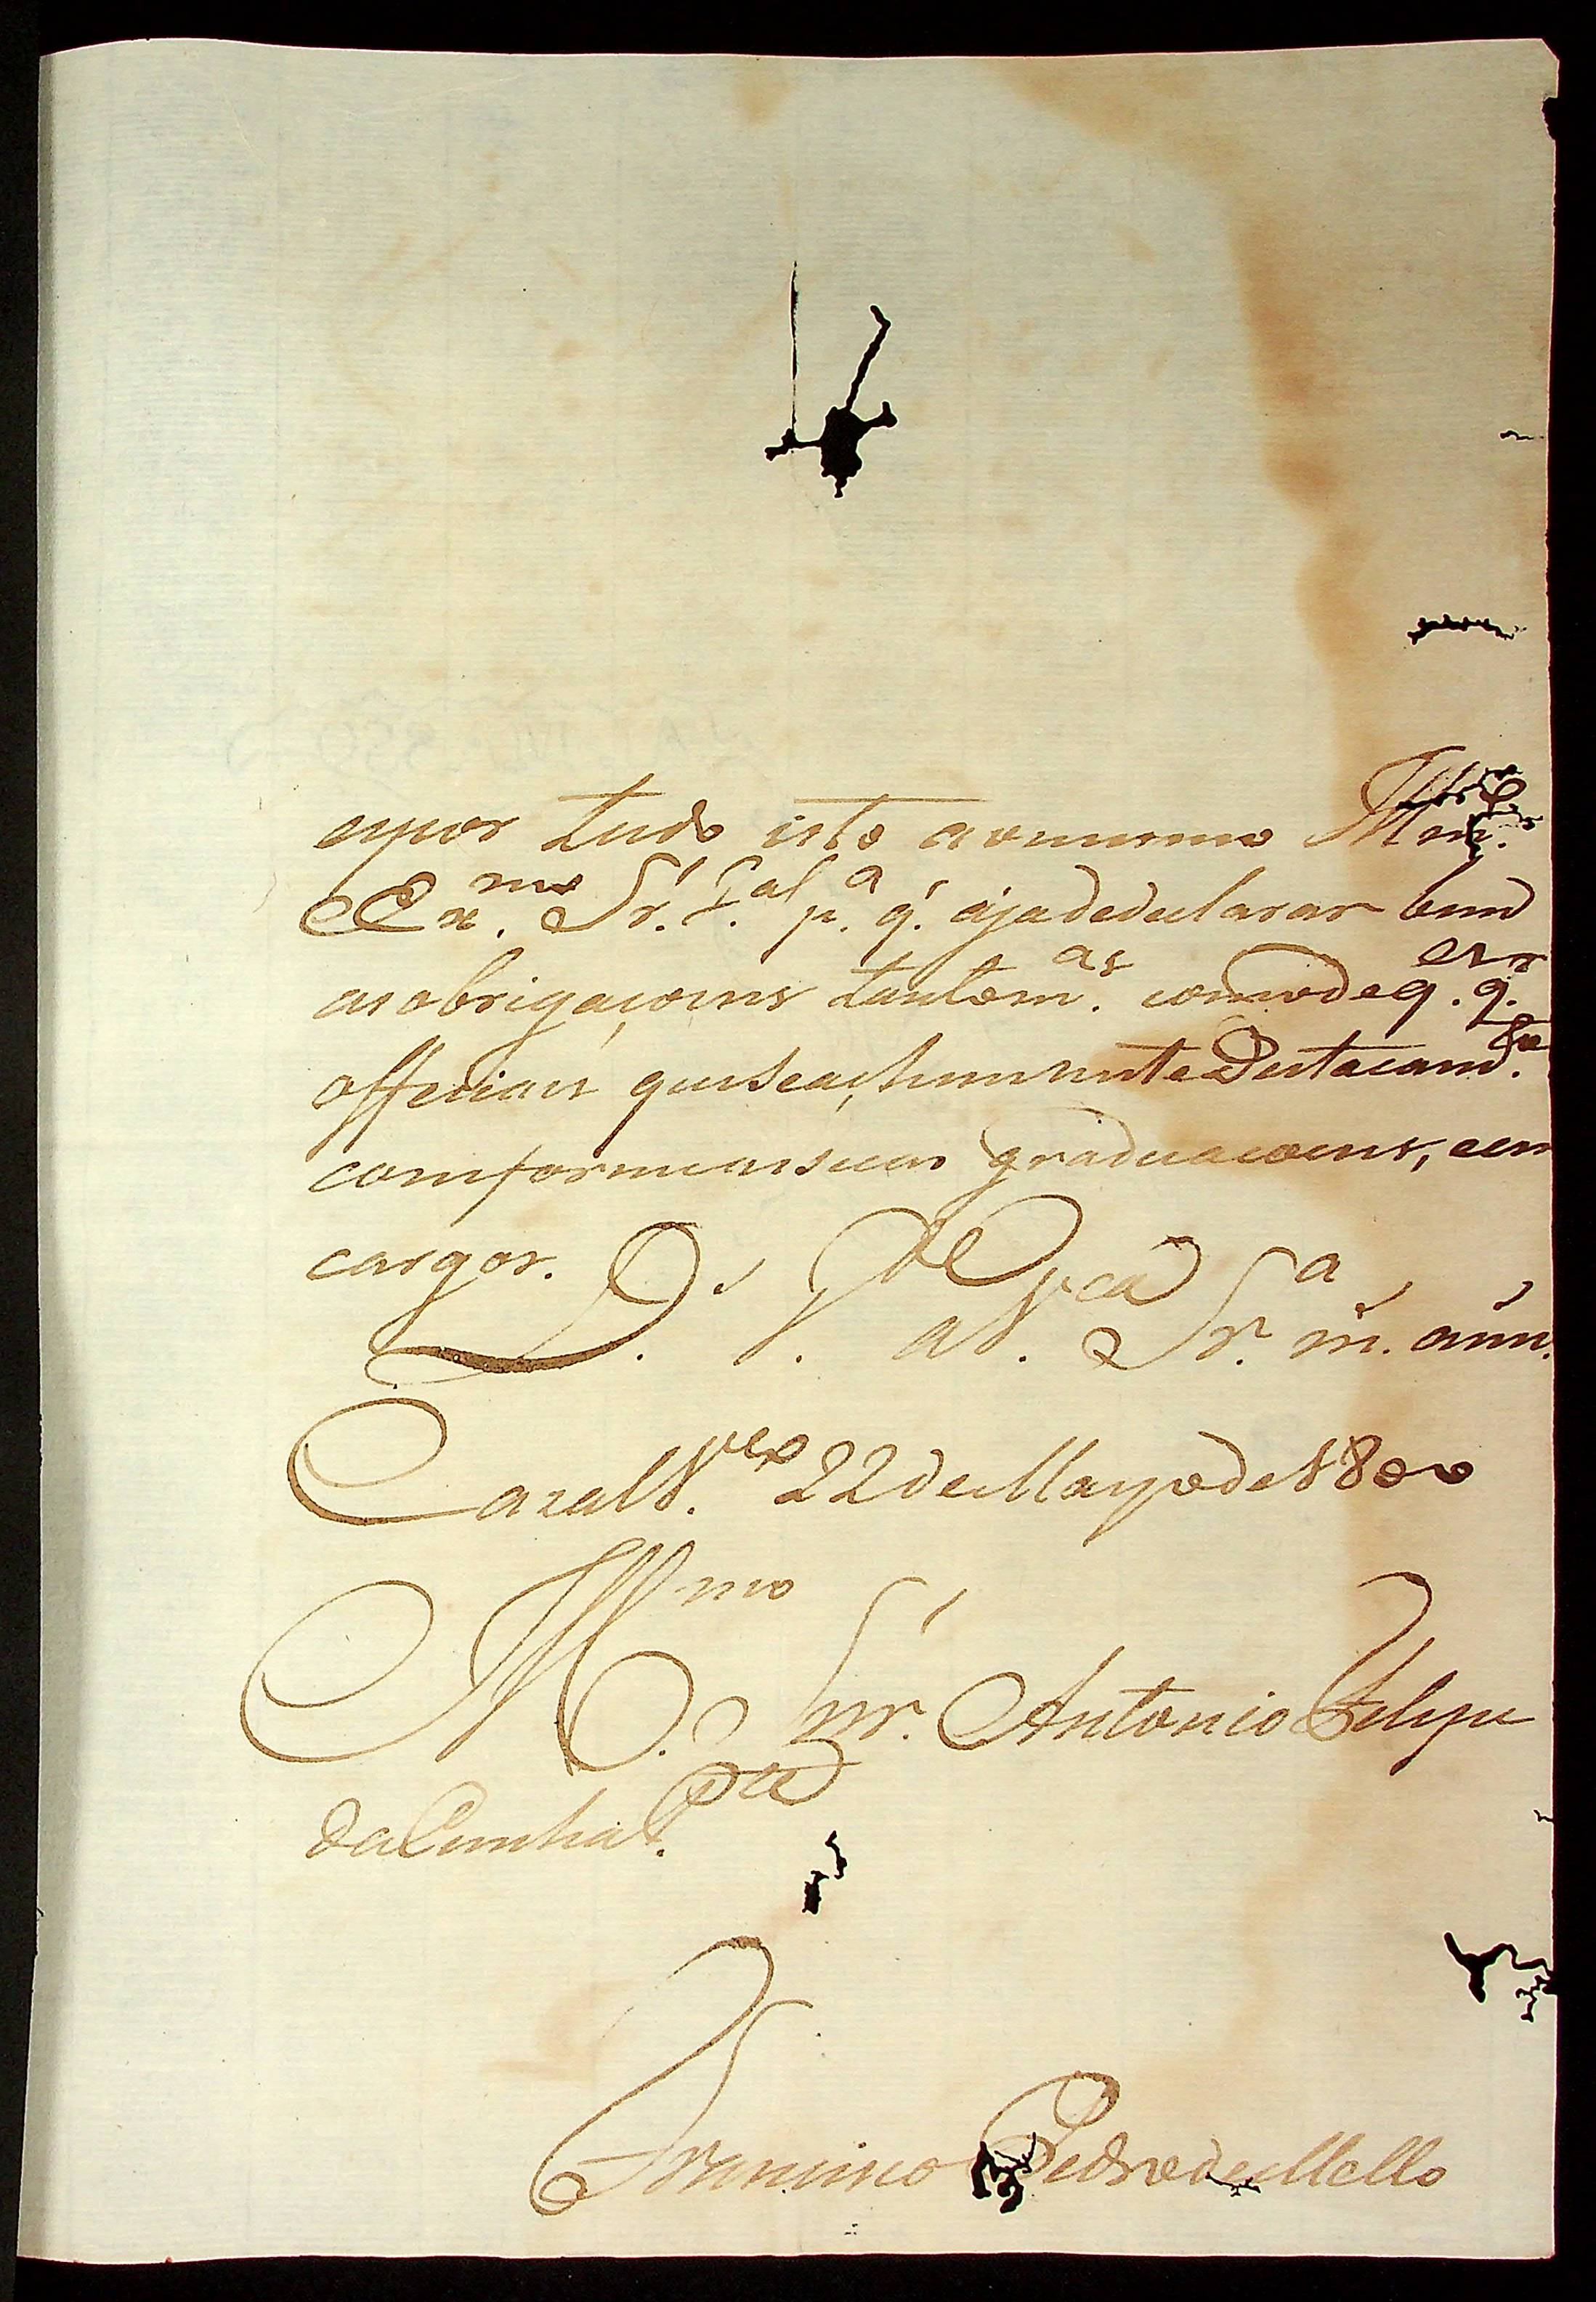 expor tudo isto aomesmo Illmo.
e Exmo. Sr. Gal. pa. q. aja dedeclarar bem
asobrigaçoens tantomas. comodeq. q.er
officiais quiseachem neste Destacamto.
comformeassuas graduacoens, eem
cargos.
D. Ge. aVca. Sra. m. ann.
CazalVco. 22 deMayode1800
Illmo. Snr. Antonio Felipe
daCunha Pte.
Francisco PedrodeMello